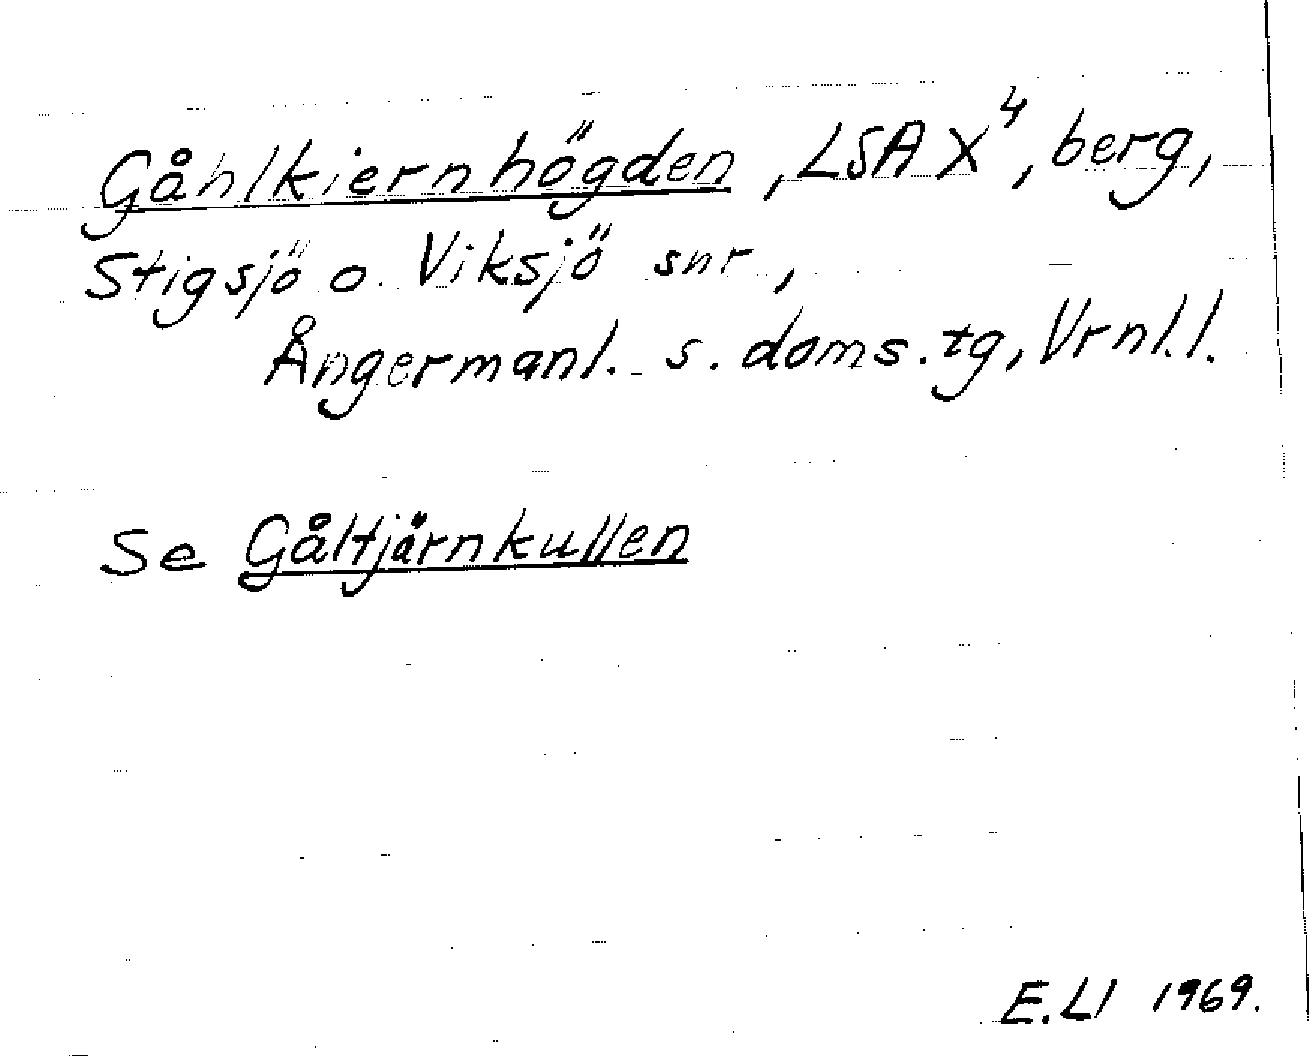 Gåhlkiernhögden, LSA X⁴, berg,
Stigsjö o. Viksjö snr,
Ångermanl. s. doms. tg, Vrnl. l.
Se Gåltjärnkullen
E.Ll 1969.